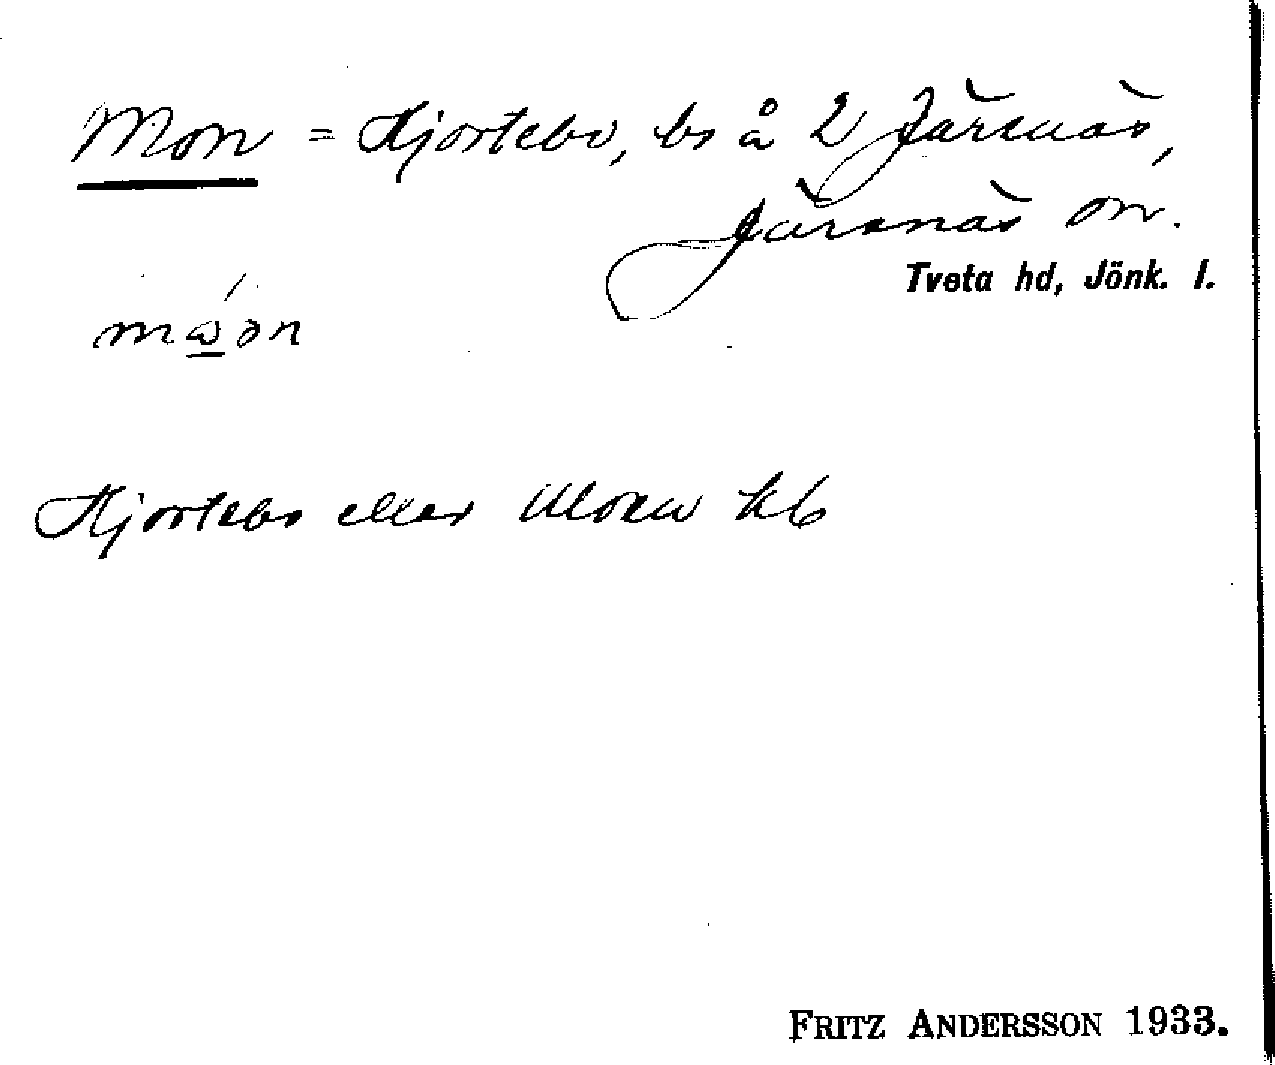 Mon = Hjortebo, bs å 2 Järsnäs,
Järsnäs sn.
Tveta hd, Jönk. l.
Hjortebo eller Moen kb
FRITZ ANDERSSON 1933.